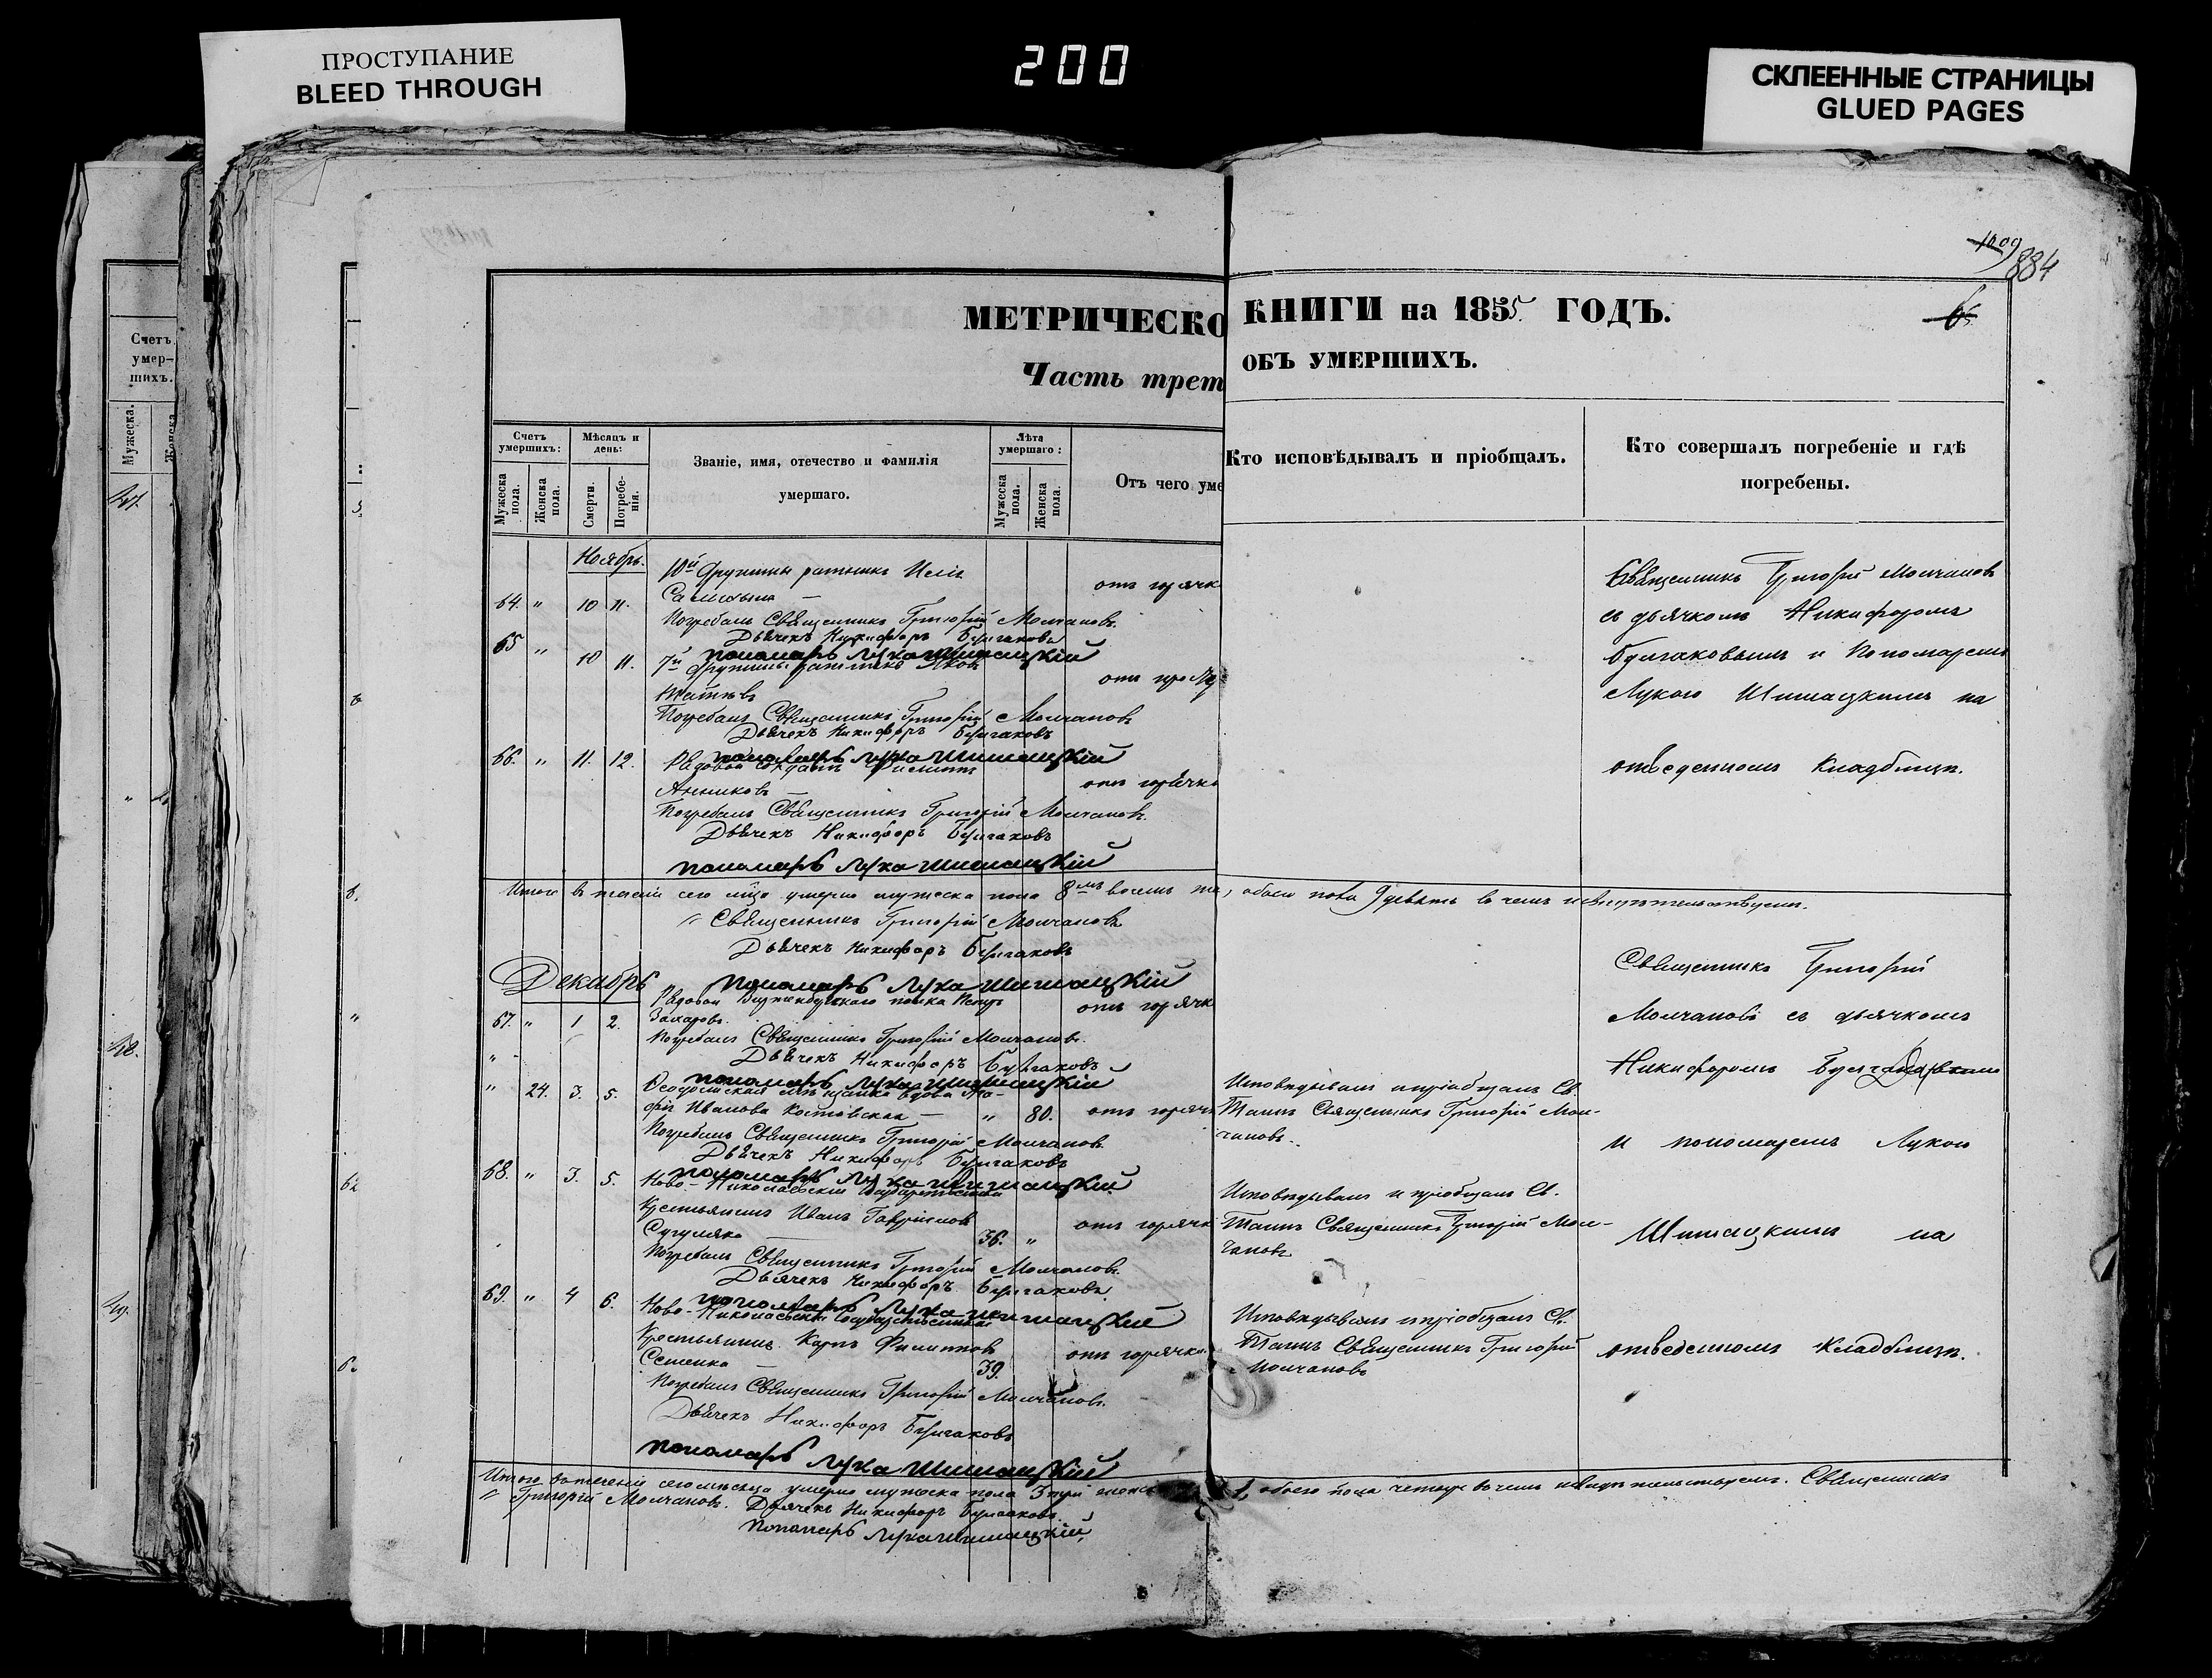 ПРОСТУПАНИЕ
BLEED THROUGH
200
СКЛЕЕННЫЕ СТРАНИЦЫ
GLUED PAGES
Счетъ
умер-
шихъ.
Мужеска.
Женска
47.
48.
49.
1009
884
МЕТРИЧЕСКО
Часть трет
КНИГИ на 1855 ГОДЪ.
ОБЪ УМЕРШИХЪ.
Счетъ умершихъ:
Мужеска пола.
Женска пола.
Мѣсяцъ и день:
Смерти.
Погребенія.
Званіе, имя, отечество и фамилія
умершаго.
Лѣта умершаго:
Мужеска пола.
Женска пола.
Отъ чего уме
Кто исповѣдывалъ и пріобщалъ.
Кто совершалъ погребеніе и гдѣ
погребены.
Ноябрь.
64. " 10 11. 10й Дружины ратникъ
отъ горячк
Погребалъ Священникъ Григорій Молчановъ.
Дьячекъ Никифоръ Булгаковъ
пономарь Лука Шишацкій
65 " 10 11. 7й Дружины ратникъ Яковъ
Погребалъ Священникъ Григорій Молчановъ
Дьячекъ Никифоръ Булгаковъ
пономарь Лука Шишацкій
66. " 11. 12. Рядовой Филиппъ
Анниковъ
отъ горячк
Погребалъ Священникъ Григорій Молчановъ.
Дьячекъ Никифоръ Булгаковъ
пономарь Лука Шишацкій
Священникъ Григорій Молчановъ
съ дьячкомъ Никифоромъ
Булгаковымъ и Пономаремъ
Лукою Шишацкимъ на
отведенномъ Кладбищѣ.
Итого въ теченіи сего мѣсяца умерло мужеска пола 8мь восемь обоего пола 9 девять въ чемъ и свидѣтельствуемъ.
Священникъ Григорій Молчановъ
Дьячекъ Никифоръ Булгаковъ
пономарь Лука Шишацкій
Декабрь
67. " 1 2. Рядовой полка
Захаровъ.
отъ горячк
Погребалъ Священникъ Григорій Молчановъ.
Дьячекъ Никифоръ Булгаковъ
пономарь Лука Шишацкій
" 24. 3. 5. мѣщанка вдова
Иванова Костовская — " 80. отъ горяч
Погребалъ Священникъ Григорій Молчановъ.
Дьячекъ Никифоръ Булгаковъ
пономарь Лука Шишацкій
Исповѣдывалъ и пріобщалъ Св.
Таинъ Священникъ Григорій Мол-
чановъ.
68. " 3. 5. Ново-Николаевскій Государственный
Крестьянинъ Иванъ Гавриловъ
36. " отъ горячк
Погребалъ Священникъ Григорій Молчановъ.
Дьячекъ Никифоръ Булгаковъ
пономарь Лука Шишацкій
Исповѣдывалъ и пріобщалъ Св.
Таинъ Священникъ Григорій Мол-
чановъ
69. " 4 6. Ново-Николаевскій Государственный
Крестьянинъ Карпъ Филипповъ
Сененко — 39. отъ горячки
Погребалъ Священникъ Григорій Молчановъ.
Дьячекъ Никифоръ Булгаковъ
пономарь Лука Шишацкій
Исповѣдывалъ и пріобщалъ Св.
Таинъ Священникъ Григорій
Молчановъ
Священникъ Григорій
Молчановъ съ дьячкомъ
Никифоромъ
и пономаремъ Лукою
Шишацкимъ на
отведенномъ Кладбищѣ.
Итого въ теченіи сего мѣсяца умерло мужеска пола 3 три обоего пола четыре въ чемъ и свидѣтельствуемъ. Священникъ
Григорій Молчановъ. Дьячекъ Никифоръ Булгаковъ
Пономарь Лука Шишацкій